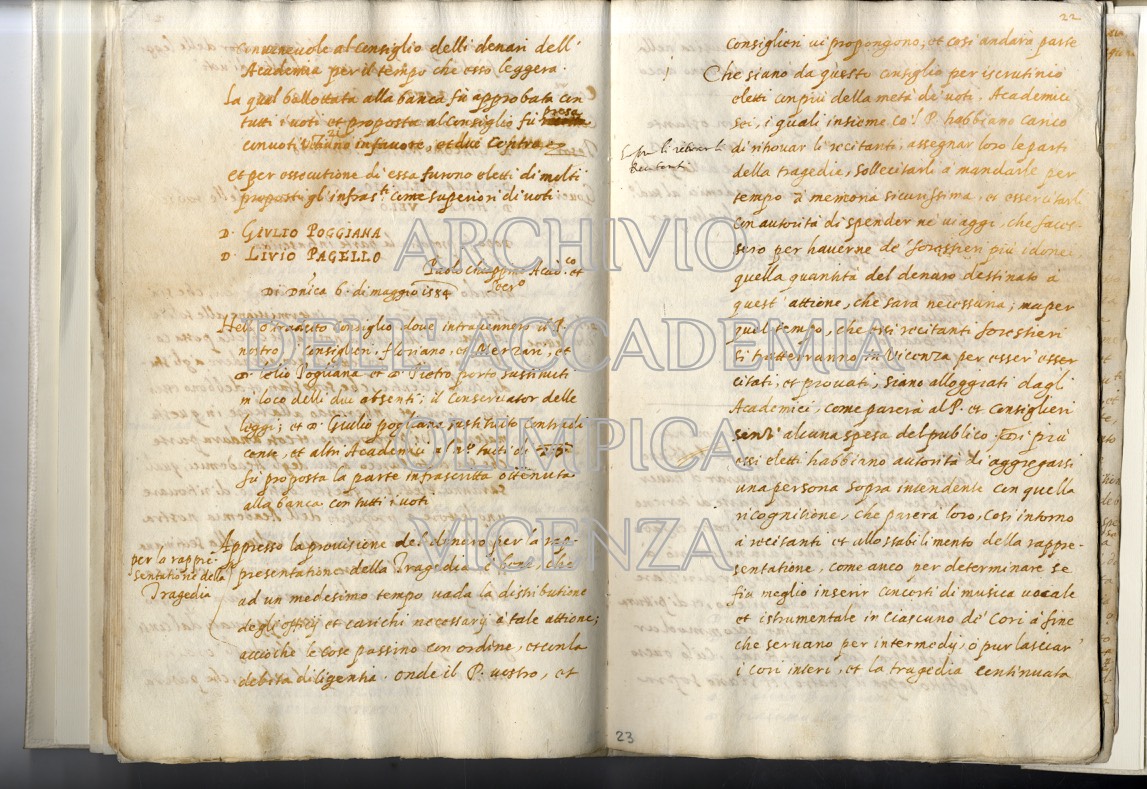 convenevole al Consiglio delli denari dell'
Academia per il tempo che esso leggera.
La qual ballottata alla banca fù approbata con
tutti i voti et proposta al Consiglio fù presa
con voti 21 in favore, et dui contra
et per essecutione di essa furono eletti di molti
proposti gl'infras.ti come superiori di voti
D. GIULIO POGGIANA
D. LIVIO PAGELLO
Paolo Acad.co et
Secr.o
Di Dnica 6. di maggio 1584
Nell'o Consiglio dove intravennero il P.
nostro, Consiglieri, floriano, et Merzari, et
D. Elio Pogliana et D. Pietro porto sustituiti
in loco delli due absenti; il Conservator delle
leggi; et D. Giulio pogliana sustituito contradi
cente, et altri Academici al n.o tutti di 25
fù proposta la parte infrascritta ottenuta
alla banca con tutti i voti
per la rappre-
sentatione della
Tragedia
Appresso la provisione del denaro per la rap-
presentatione della Tragedia è bene, che
ad un medesimo tempo vada la distributione
degli officij et carichi necessarij à tale attione;
acciò che le cose passino con ordine, et con la
debita diligentia. onde il P. vostro, et
22
Consiglieri vi propongono, et così andarà parte
Che siano da questo consiglio per iscrutinio
eletti con più della metà de voti, Academici
sei, i quali insieme co'l P. habbiano carico
Sopra li retrovar li
Recitanti
di ritrovar li recitanti, assegnar loro le parti
della tragedia, sollecitarli a mandarle per
tempo à memoria sicurissima, et essercitarli
con autorità di spender ne viaggi, che faces-
sero per haverne de' forestieri più idonei
quella quantità del denaro destinato a
quest'attione, che sarà necessaria; ma per
quel tempo, che essi recitanti forestieri
si tratterranno in Vicenza per esser esser
citati, et provati, siano alloggiati dagli
Academici, come parerà al P. et Consiglieri
senz'alcuna spesa del publico. Di più
essi eletti habbiano autorità di aggregarsi
una persona sopra intendente con quella
ricognitione, che parerà loro, così intorno
à recitanti et allo stabilimento della rappre-
sentatione, come anco per determinare se
fia meglio inserir concerti di musica vocale
et istrumentale in ciascuno de' Cori à fine
che servano per intermedij, ò pur lasciar
i cori interi, et la tragedia continuata
23
ARCHIVIO
DELL'ACCADEMIA
OLIMPICA
VICENZA